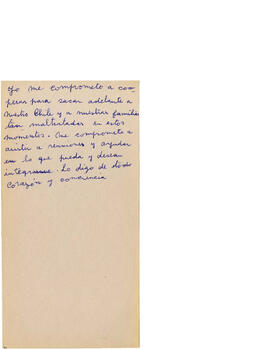 Yo me comprometo a coo-
perar para sacar adelante a
nuestro Chile y a nuestras familias
tan maltratadas en estos
momentos. Me comprometo a
asistir a reuniones y ayudar
en lo que pueda y desea
integrarme. Lo digo de todo
corazón y conciencia